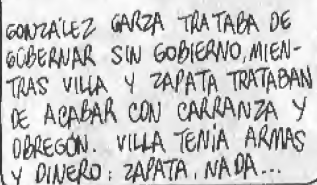 GONZÁLEZ GARZA TRATABA DE
GOBERNAR SIN GOBIERNO, MIEN-
TRAS VILLA Y ZAPATA TRATABAN
DE ACABAR CON CARRANZA Y
OBREGÓN. VILLA TENÍA ARMAS
Y DINERO; ZAPATA, NADA...